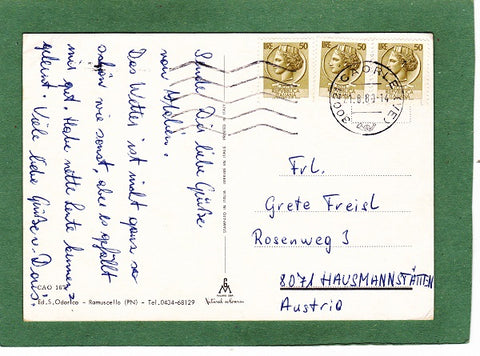 Sende Dir liebe Grüße
von Italien.
Das Wetter ist nicht ganz so
schön wie sonst, aber es gefällt
mir gut. Habe nette Leute kennen-
gelernt. Viele liebe Grüße v. Doris.
CAO 187
Ed. S. Odorico - Ramuscello (PN) - Tel. 0434-68129
LIRE 50
LIRE 50
LIRE 50
30021 CAORLE (VE)
Frl.
Grete Freisl
Rosenweg 3
8071 HAUSMANNSTÄTTEN
Austria